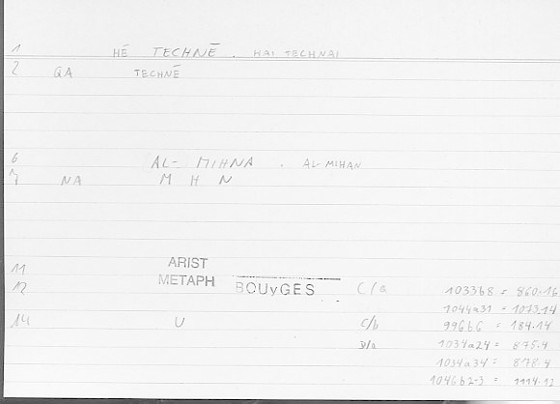 1 HĒ TECHNĒ . HAI TECHNAI
2 QA TECHNĒ
6 AL- MIHNA . AL-MIHAN
7 NA M H N
11 ARIST
12 METAPH BOUyGES C/a 1033b8 = 860.16
1044a31 = 1073.14
14 U C/b 996b6 = 184.14
D/a 1034a24 = 875.4
1034a34 = 878.4
1046b2-3 = 1114.12